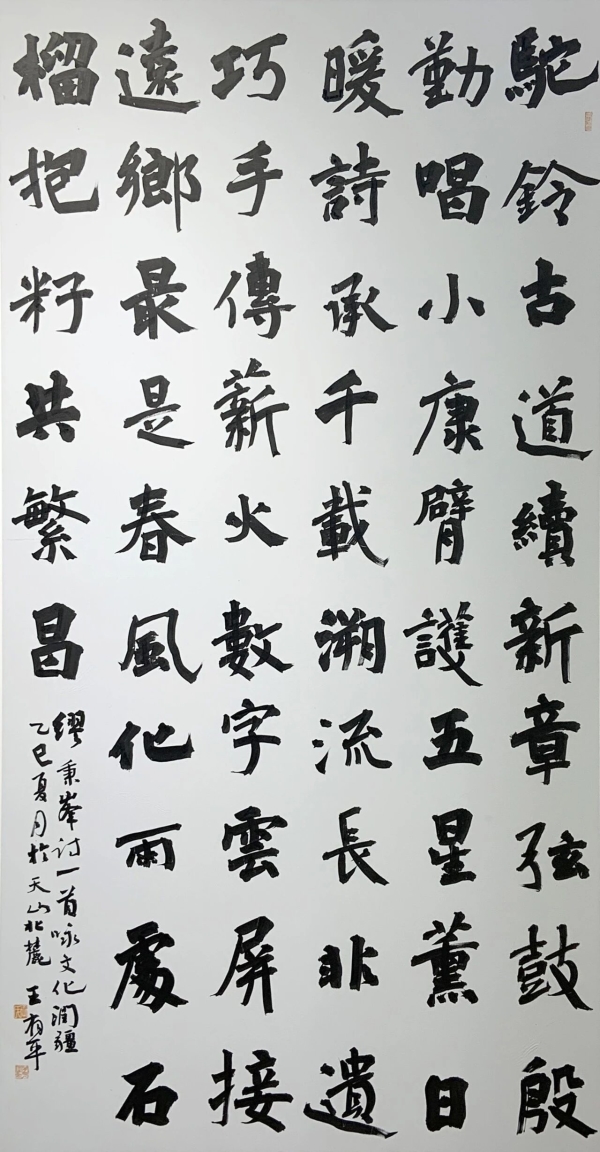 駝鈴古道續新章弦鼓殷
勤唱小康臂護五星薰日
暖詩承千載溯流長非遺
巧手傳薪火數字雲屏接
遠鄉最是春風化雨處石
榴抱籽共繁昌
繆秉峯诗一首咏文化潤疆
乙巳夏月於天山北麓 王有